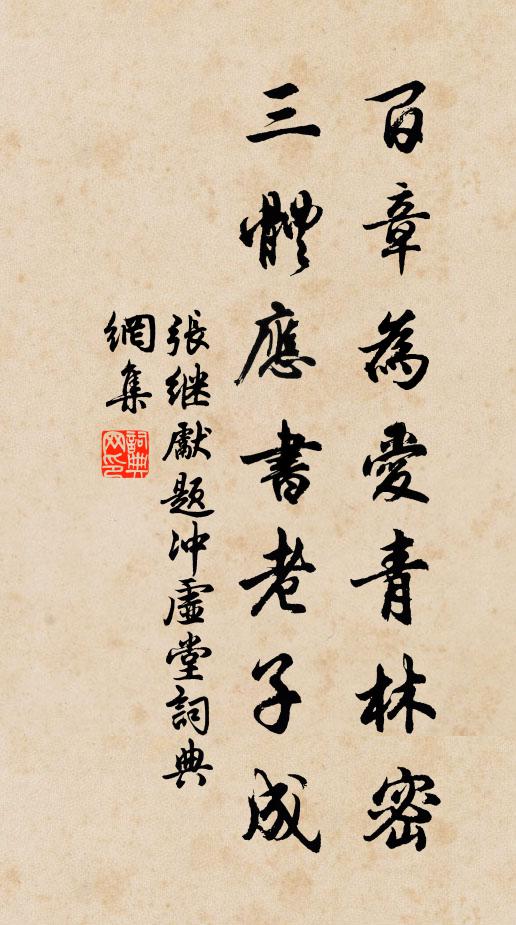 百章為愛青林密
三體應書老子成
張继獻题冲虛堂詞典
網集
詞典
网印